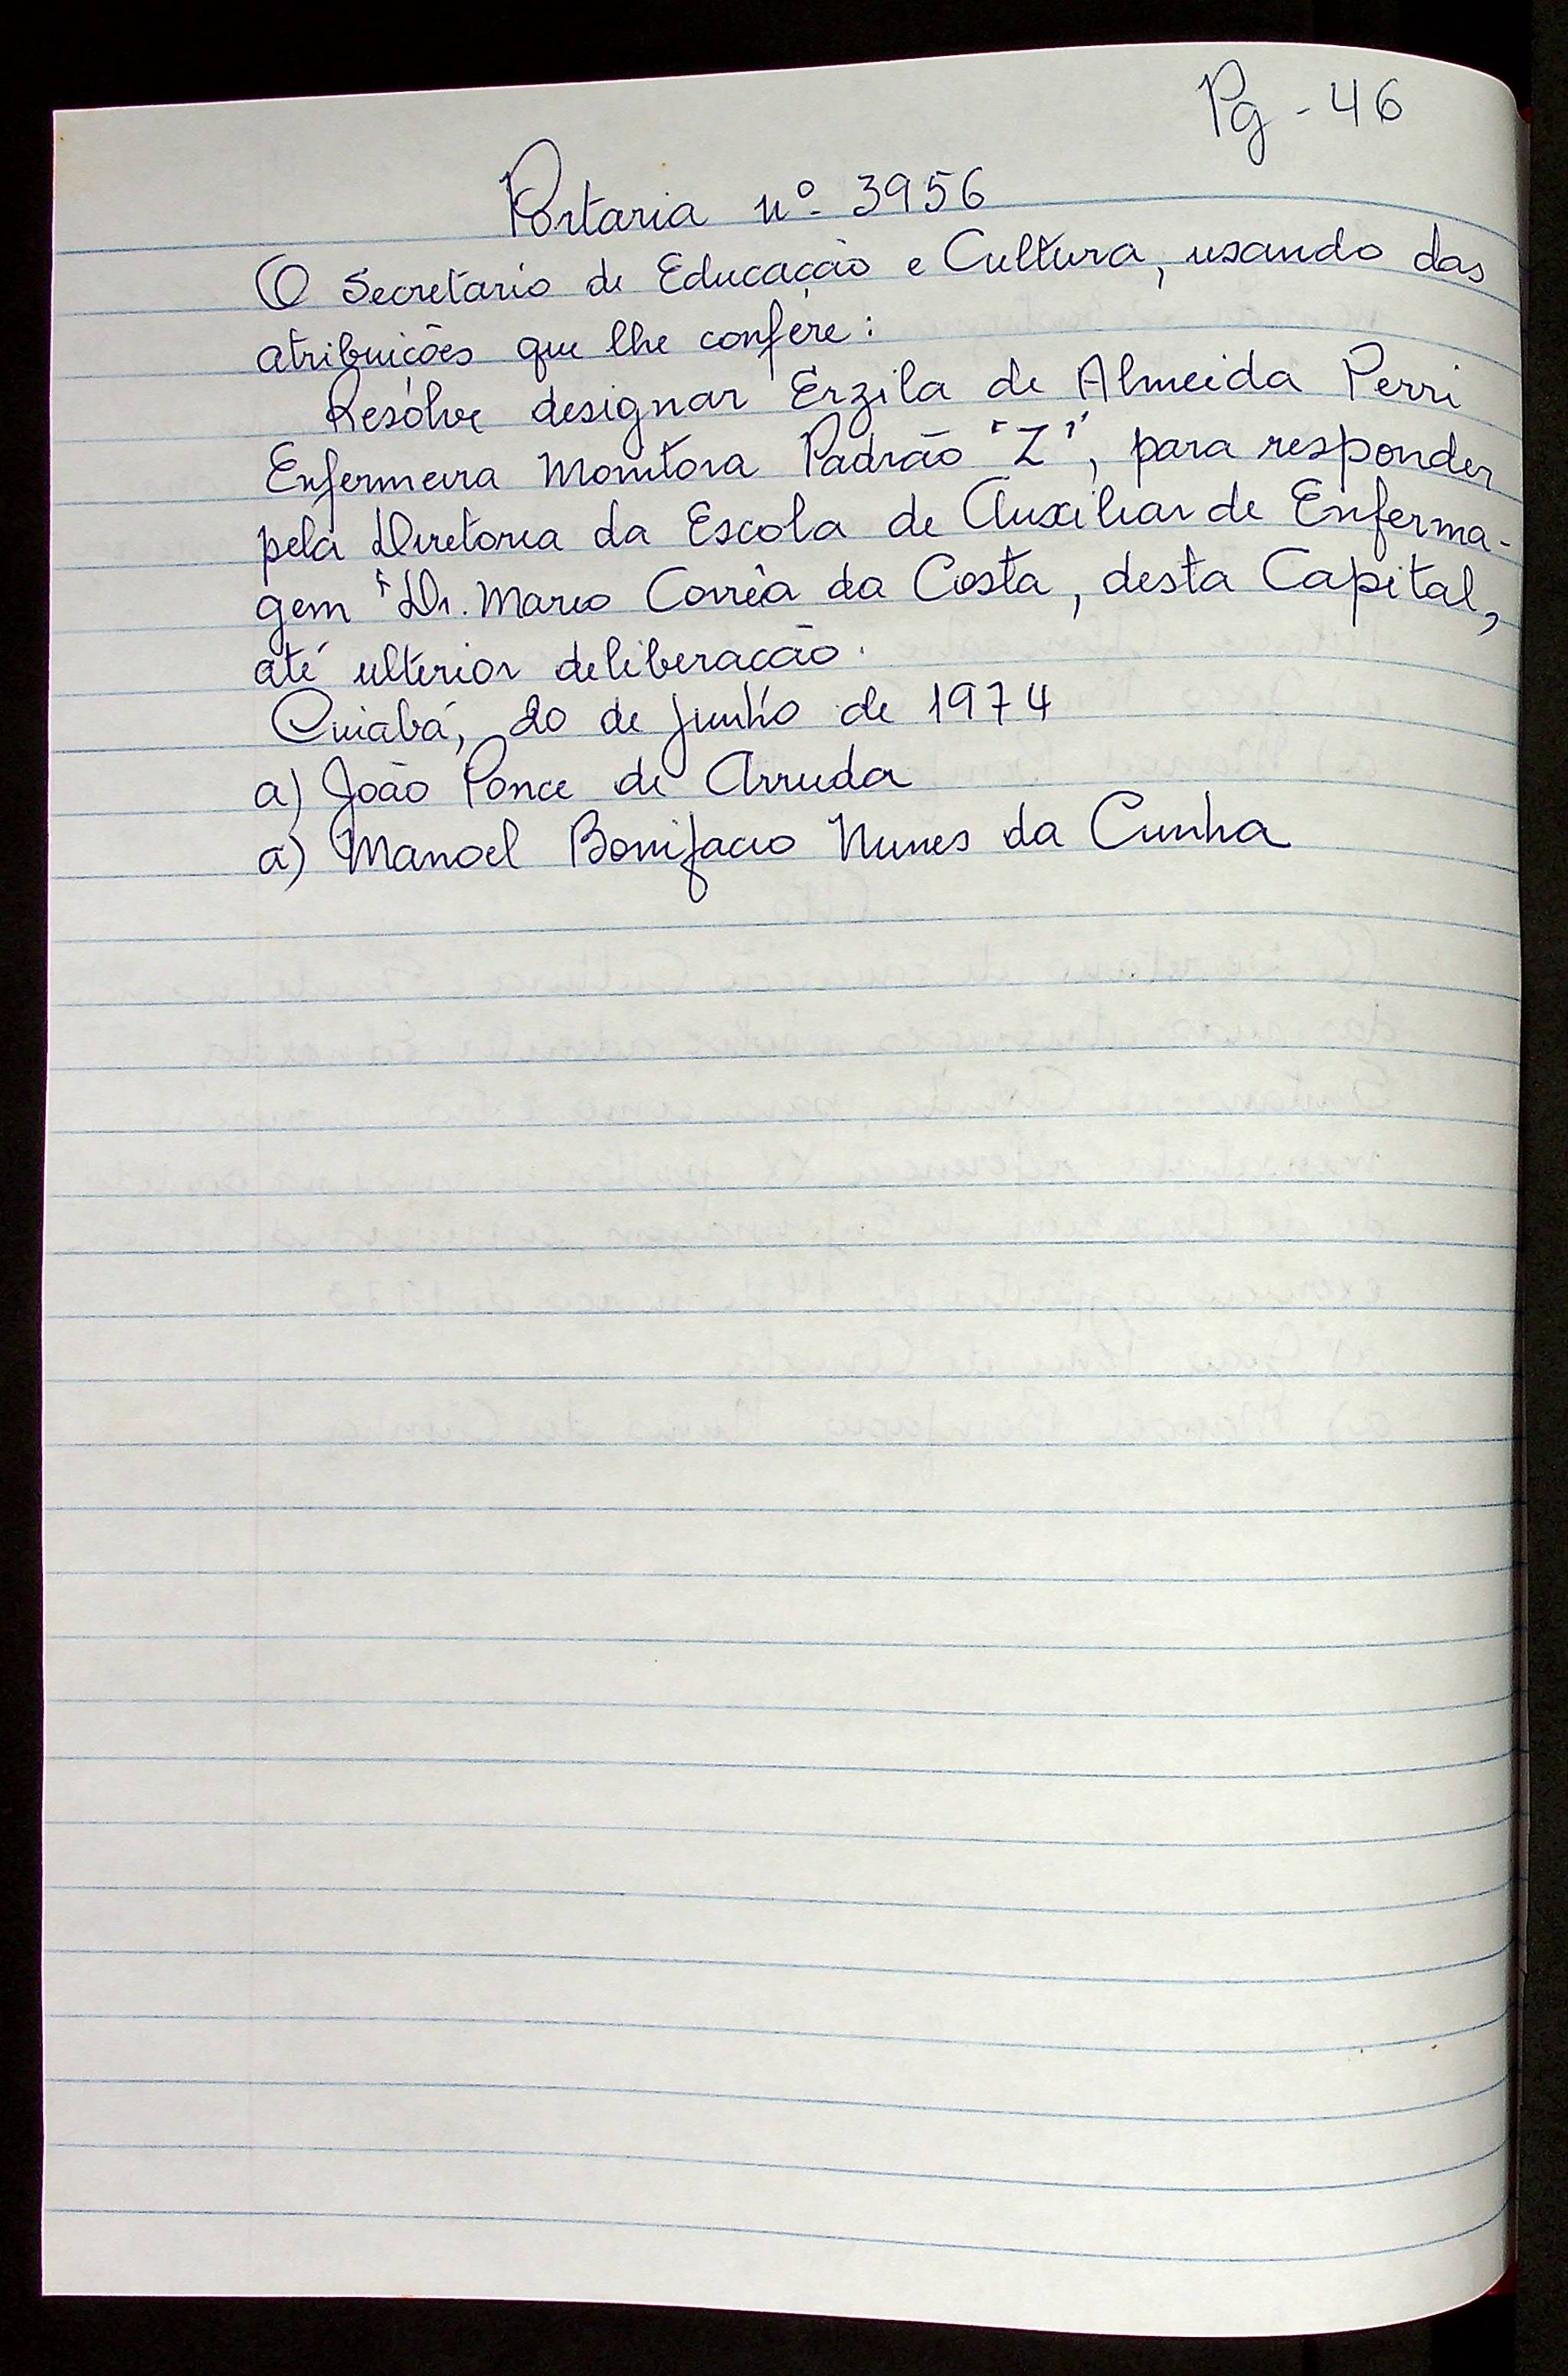 Pg - 46
Portaria nº 3956
O Secretário de Educação e Cultura, usando das
atribuições que lhe confére:
Resólve designar Erzila de Almeida Perri
Enfermeira Monitora Padrão "Z", para responder
pela Diretoria da Escola de Auxiliar de Enferma-
gem "Dr. Mario Corrêa da Costa, desta Capital,
até ulterior deliberação.
Cuiabá, 20 de junho de 1974
a) João Ponce de Arruda
a) Manoel Bonifacio Nunes da Cunha